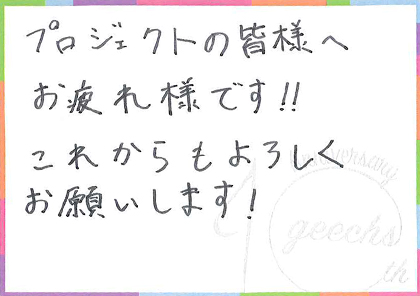 プロジェクトの皆様へ
お疲れ様です!!
これからもよろしく
お願いします!
Anniversary
10
geechs
th